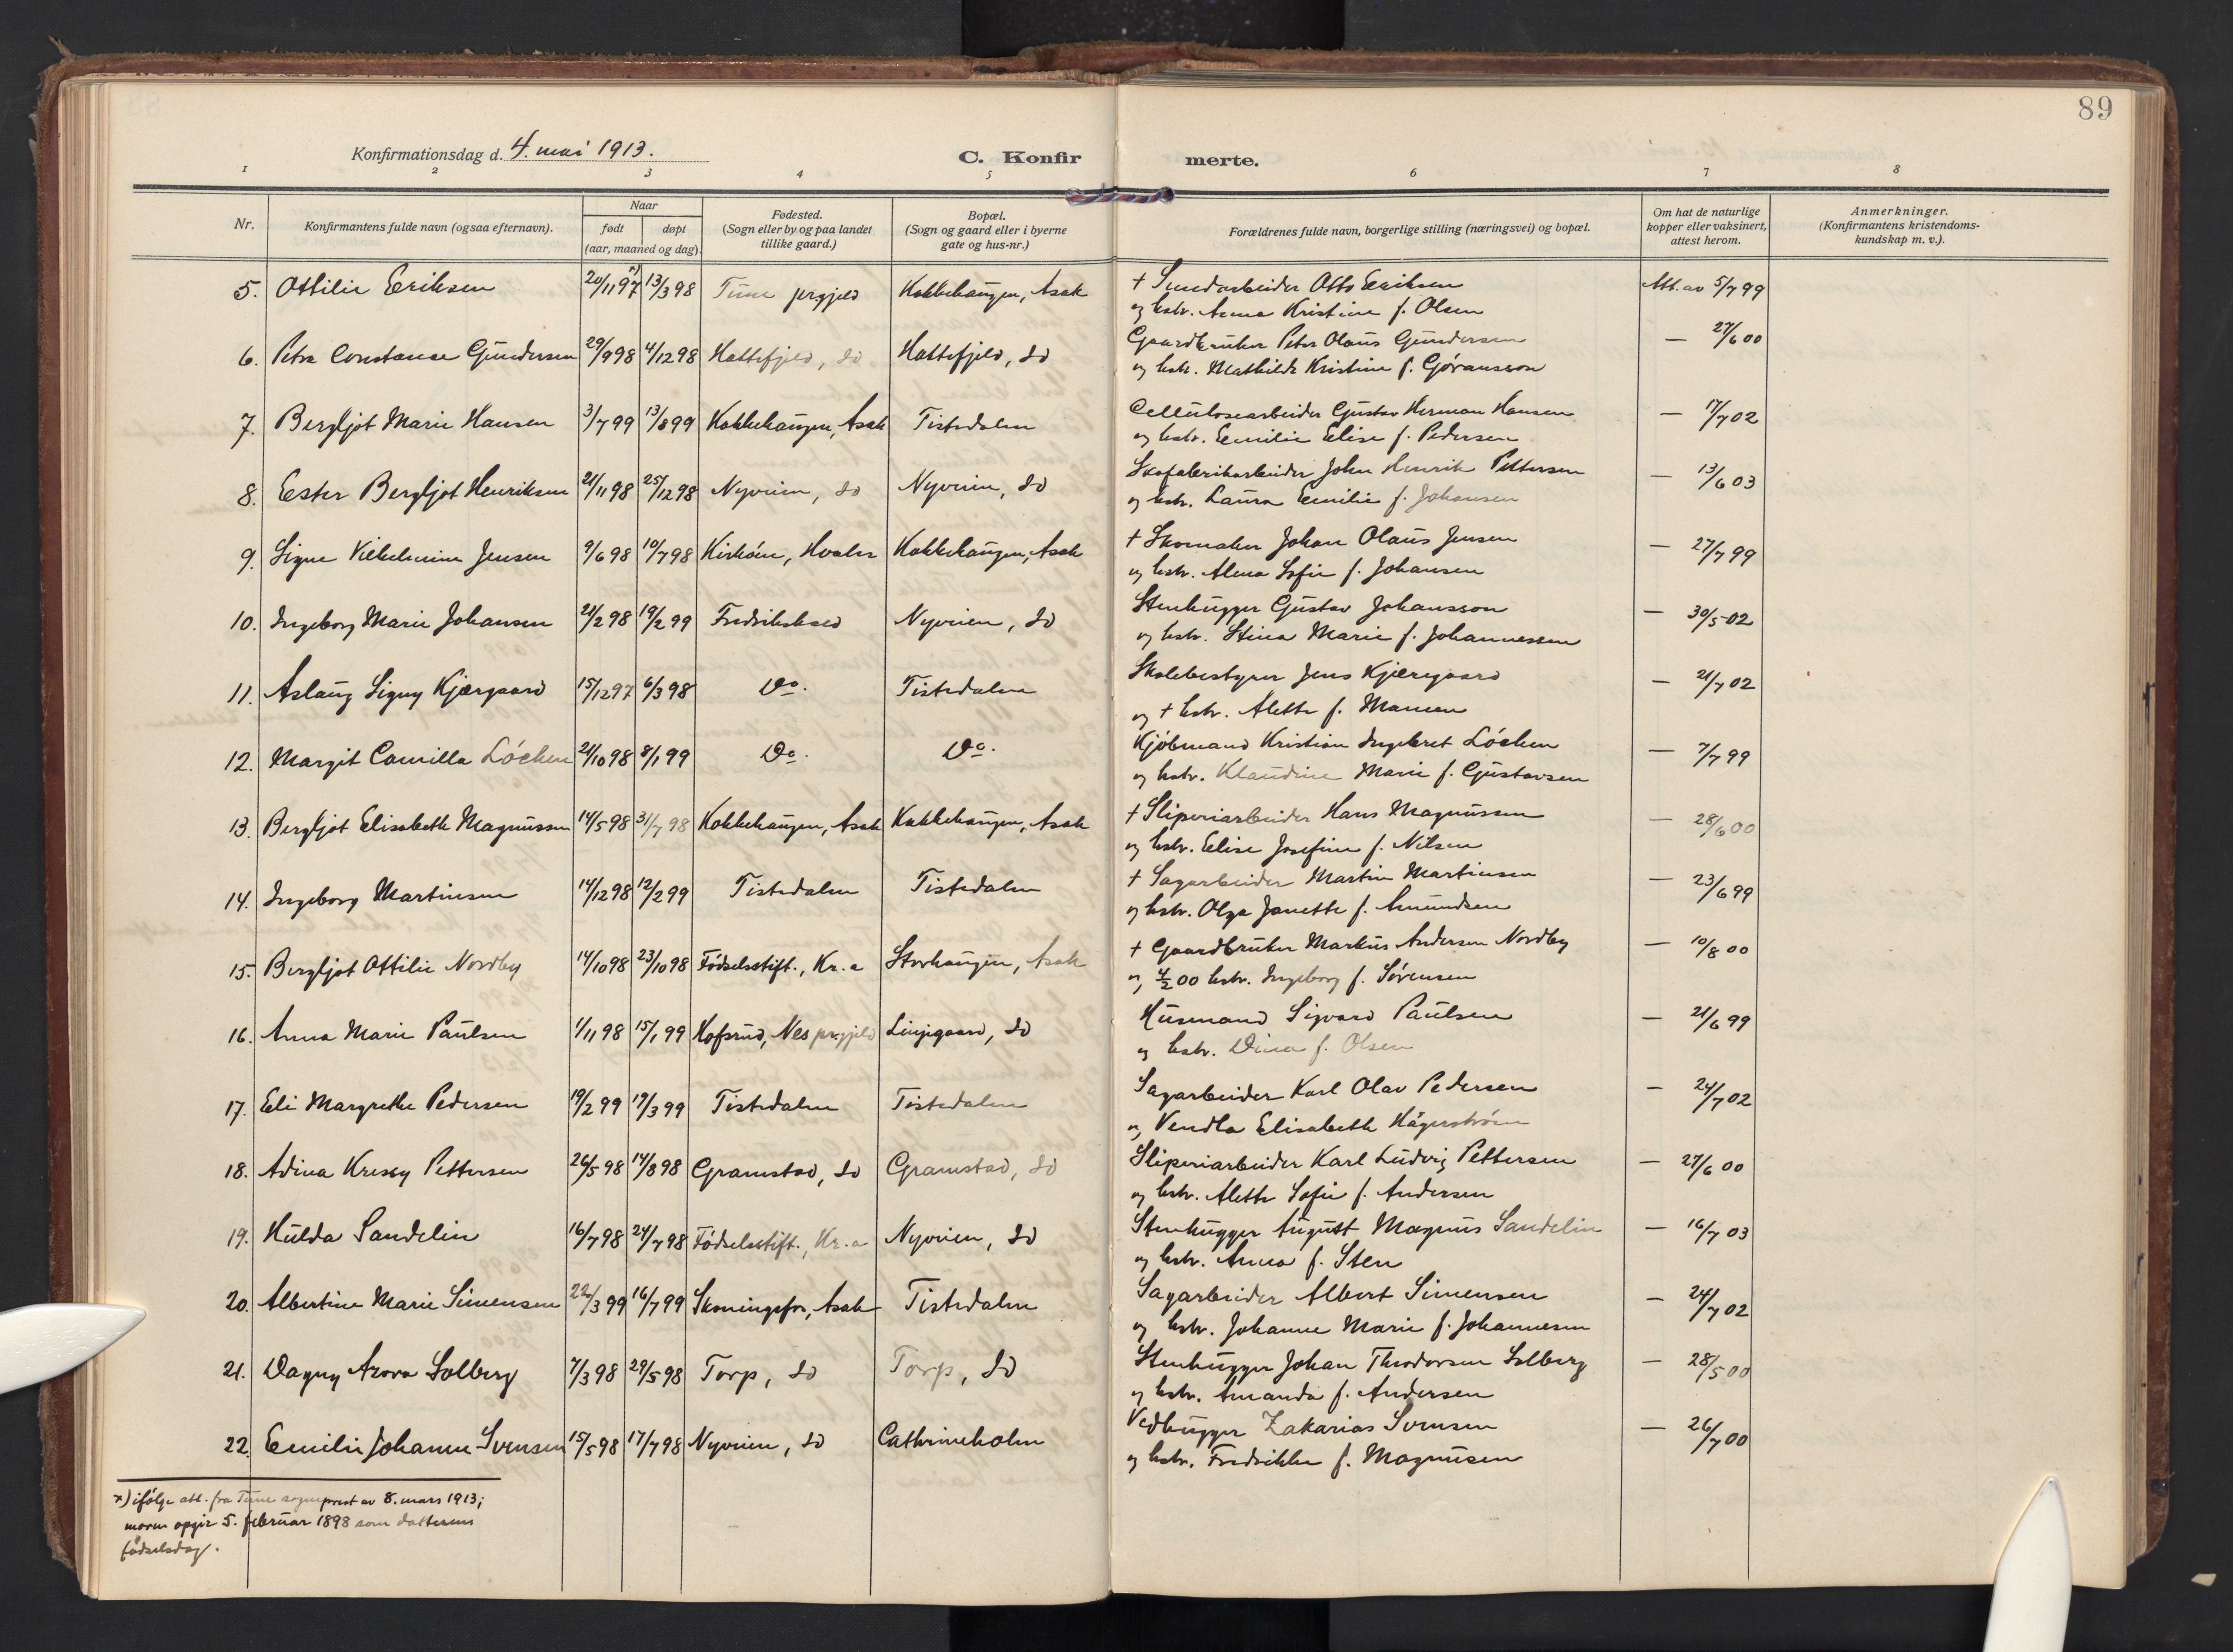 89
Konfirmationsdag d. 4. mai 1913. C. Konfirmerte.
1 2 3 4 5 6 7 8
Nr. Konfirmantens fulde navn (ogsaa efternavn). Naar født døpt (aar, maaned og dag). Fødested. (Sogn eller by og paa landet tillike gaard.) Bopæl. (Sogn og gaard eller i byerne gate og hus-nr.) Forældrenes fulde navn, borgerlige stilling (næringsvei) og bopæl. Om hat de naturlige kopper eller vaksinert, attest herom. Anmerkninger. (Konfirmantens kristendomskundskap m. v.).
5. Ottilie Eriksen 20/11 97 x) 13/3 98 Tune prgjeld Kokkehaugen, Asak † Sundarbeider Otto Eriksen Att. av 5/7 99
og hstr. Anna Kristine f. Olsen
6. Petra Constance Gundersen 29/9 98 4/12 98 Hattefjeld, do Hattefjeld, do Gaardbruker Peter Olaus Gundersen — 27/6 00
og hstr. Mathilde Kristine f. Gjøransson
7. Bergljot Marie Hansen 3/7 99 13/8 99 Kokkehaugen, Asak Tistedalen Cellulosearbeider Gustav Herman Hansen — 17/7 02
og hstr. Emilie Elise f. Pedersen
8. Ester Bergljot Henriksen 21/11 98 25/12 98 Nyveien, do Nyveien, do Skofabrikarbeider John Henrik Pettersen — 13/6 03
og hstr. Laura Emilie f. Johansen
9. Signe Vilhelmine Jensen 9/6 98 10/7 98 Kirkøen, Hvaler Kokkehaugen, Asak † Skomaker Johan Olaus Jensen — 27/7 99
og hstr. Alma Sofie f. Johansen
10. Ingeborg Marie Johansen 21/2 98 19/2 99 Fredrikshald Nyveien, do Stenhugger Gustav Johansson — 30/5 02
og hstr. Stina Marie f. Johannessen
11. Aslaug Signy Kjærgaard 15/12 97 6/3 98 Do. Tistedalen Skolebestyrer Jens Kjærgaard — 21/7 02
og † hstr. Alette f. Mansen
12. Margit Camilla Løchen 21/10 98 8/1 99 Do. Do. Kjøbmand Kristian Ingebret Løchen — 7/7 99
og hstr. Klaudine Marie f. Gustavsen
13. Bergljot Elisabeth Magnussen 14/5 98 31/7 98 Kokkehaugen, Asak Kokkehaugen, Asak † Sliperiarbeider Hans Magnussen — 28/6 00
og hstr. Elise Josefine f. Nilsen
14. Ingeborg Martinsen 14/12 98 12/2 99 Tistedalen Tistedalen † Sagarbeider Martin Martinsen — 23/6 99
og hstr. Olga Janette f. Amundsen
15. Bergljot Ottilie Nordby 14/10 98 23/10 98 Fødselsstift., Kr.a Storhaugen, Asak † Gaardbruker Markus Andersen Nordby — 10/8 00
og 4/2 00 hstr. Ingeborg f. Sørensen
16. Anna Marie Paulsen 1/11 98 15/1 99 Hofsrud, Nes prgjeld Linjegaard, do Husmand Sigvard Paulsen — 21/6 99
og hstr. Dina f. Olsen
17. Eli Margrethe Pedersen 19/2 99 19/3 99 Tistedalen Tistedalen Sagarbeider Karl Olav Pedersen — 24/7 02
og Vendla Elisabeth Hägerström
18. Adina Kressy Pettersen 26/5 98 14/8 98 Gramstad, do Gramstad, do Sliperiarbeider Karl Ludvig Pettersen — 27/6 00
og hstr. Alette Sofie f. Andersen
19. Hulda Sandelin 16/7 98 24/7 98 Fødselsstift., Kr.a Nyveien, do Stenhugger August Magnus Sandelin — 16/7 03
og hstr. Anna f. Sten
20. Albertine Marie Simensen 22/3 99 16/7 99 Skoningsfos, Asak Tistedalen Sagarbeider Albert Simensen — 24/7 02
og hstr. Johanne Marie f. Johannesen
21. Dagny Azora Solberg 7/3 98 29/5 98 Torp, do Torp, do Stenhugger Johan Theodorsen Solberg — 28/5 00
og hstr. Amanda f. Andersen
22. Emilie Johanne Svensen 15/5 98 17/7 98 Nyveien, do Cathrineholm Vedhugger Zakarias Svensen — 26/7 00
og hstr. Fredrikke f. Magnusen
x) ifølge att. fra Tune sogneprest av 8. mars 1913;
moren opgir 5. februar 1898 som datterens
fødselsdag.